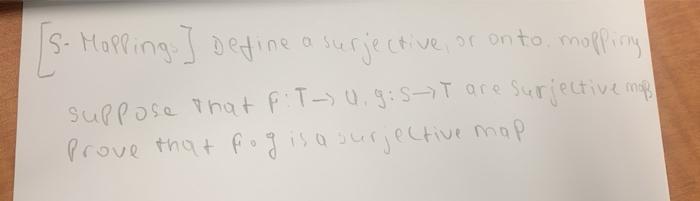 [S- Mappings] Define a surjective, or onto, mapping
suppose that f: T → U, g: S → T are surjective maps
Prove that f∘g is a surjective map